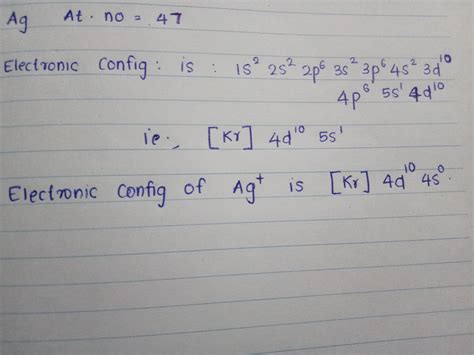 Ag At. no = 47
Electronic Config : is : 1s² 2s² 2p⁶ 3s² 3p⁶ 4s² 3d¹⁰
4p⁶ 5s¹ 4d¹⁰
ie., [Kr] 4d¹⁰ 5s¹
Electronic Config of Ag⁺ is [Kr] 4d¹⁰ 4s⁰.